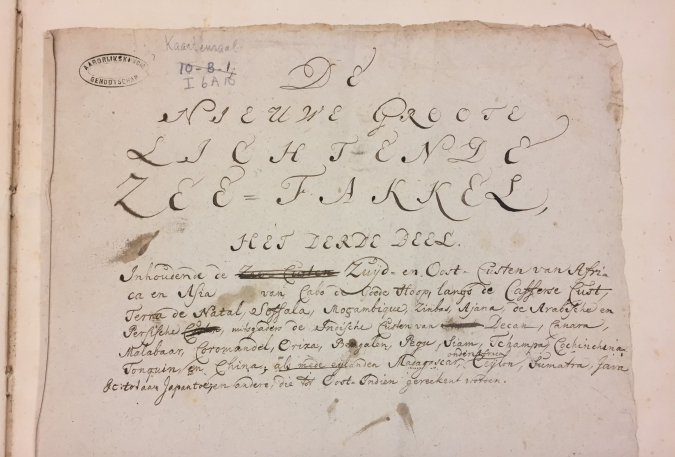 AARDRIJKSKUNDIG
GENOOTSCHAP
Kaartenzaal
10-8-1
I 6A 10
DE
NIEUWE GROOTE
LICHTENDE
ZEE=FAKKEL,
HET DERDE DEEL.
Inhoudende de Zee Custen Zuyd- en Oost-Custen van Afri-
ca en Asia van Cabo de Goede Hoop, langs de Cafferse Cust,
Terra de Natal, Soffala, Moçambique, Zinbas, Ajana, de Arabische en
Persische Custen, mitsgaders de Indische Custen van Decan, Canara,
Malabaar, Coromandel, Orixa, Bengalen, Pegu, Siam, Tchampa, Cochinchina
Tonquin, en China; als mede eylanden Madagascar, Ceylon, Sumatra, Java
en andere, die tot Oost-Indien gereekent worden.